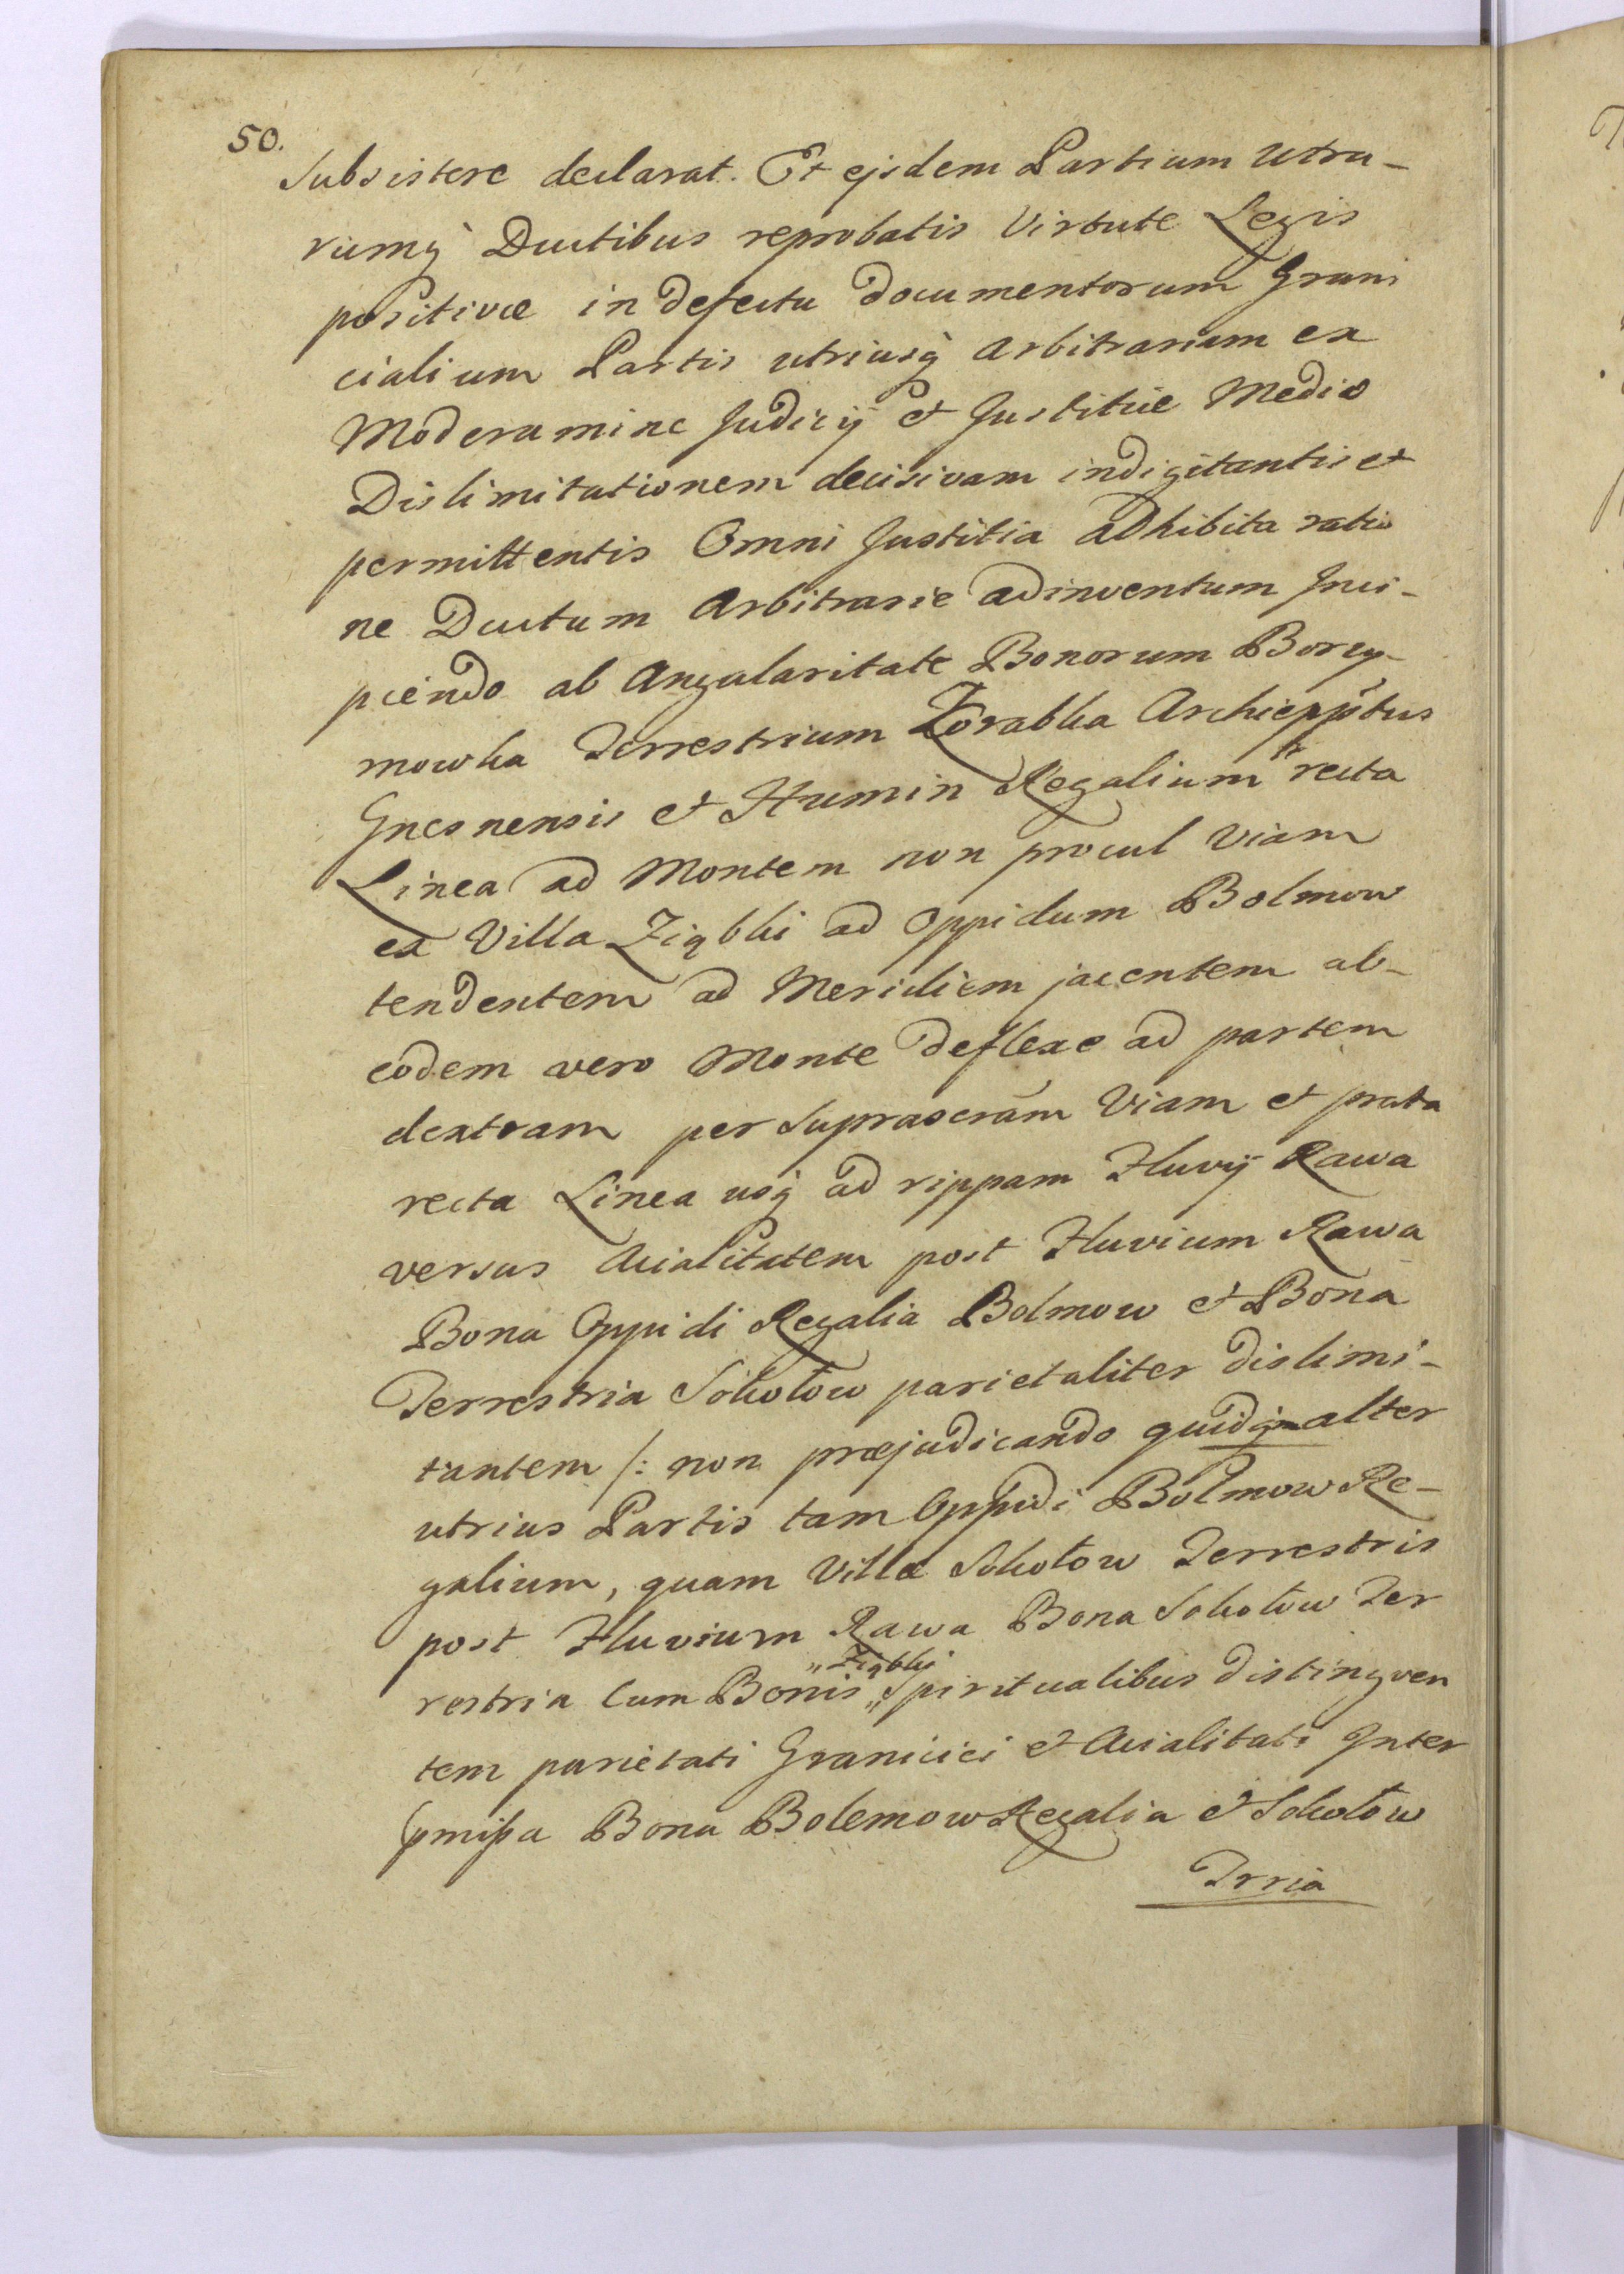 50.
Subsistere declarat. Et ejsdem Partium Utra-
rumq Ductibus reprobatis Virtute Legis
positivæ in defectu documentorum Grani
cialium Partis utriusq Arbitrariam ex
Moderamine Judicij et Justitiæ Medio
Dislimitationem decisivam indigitantis et
permittentis Omni Justitia adhibita ratio
ne Ductum Arbitrarie adinventum Inci-
piendo ab Angularitate Bonorum Borzy-
mowka Terrestrium Zorabka Archieppŝtus
Gnesnensis et Humin Regalium recta
Linea ad Montem non procul Viam
ex Villa Ziąbki ad Oppidum Bolmow
tendentem ad Meridiem jacentem ab-
eodem vero Monte deflexe ad partem
dextram per Suprascram Viam et prata
recta Linea usq ad rippam Fluvij Rawa
versus Acialitatem post Fluvium Rawa
Bona Oppidi Regalia Bolmow et Bona
Terrestria Sokołow parietaliter dislimi-
tantem /: non præjudicando quidq alter
utrius Partis tam Oppidi Bolmow Re-
galium, quam Villæ Sokołow Terrestris
post Fluvium Rawa Bona Sokołow Ter
restria Cum Bonis „Ziąbki„ Spiritualibus distingven
tem parietati Granicici et Acialitati Inter
pmissa Bona Bolemow Regalia et Sokołow
Trria